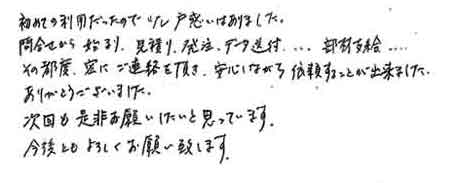 初めての利用だったので少し戸惑いはありました。
問合せから始まり、見積り、発注、データ送付、… 部材支給 ‥‥
その都度、密にご連絡を頂き、安心しながら依頼することが出来ました。
ありがとうございました。
次回も是非お願いしたいと思っています。
今後ともよろしくお願い致します。